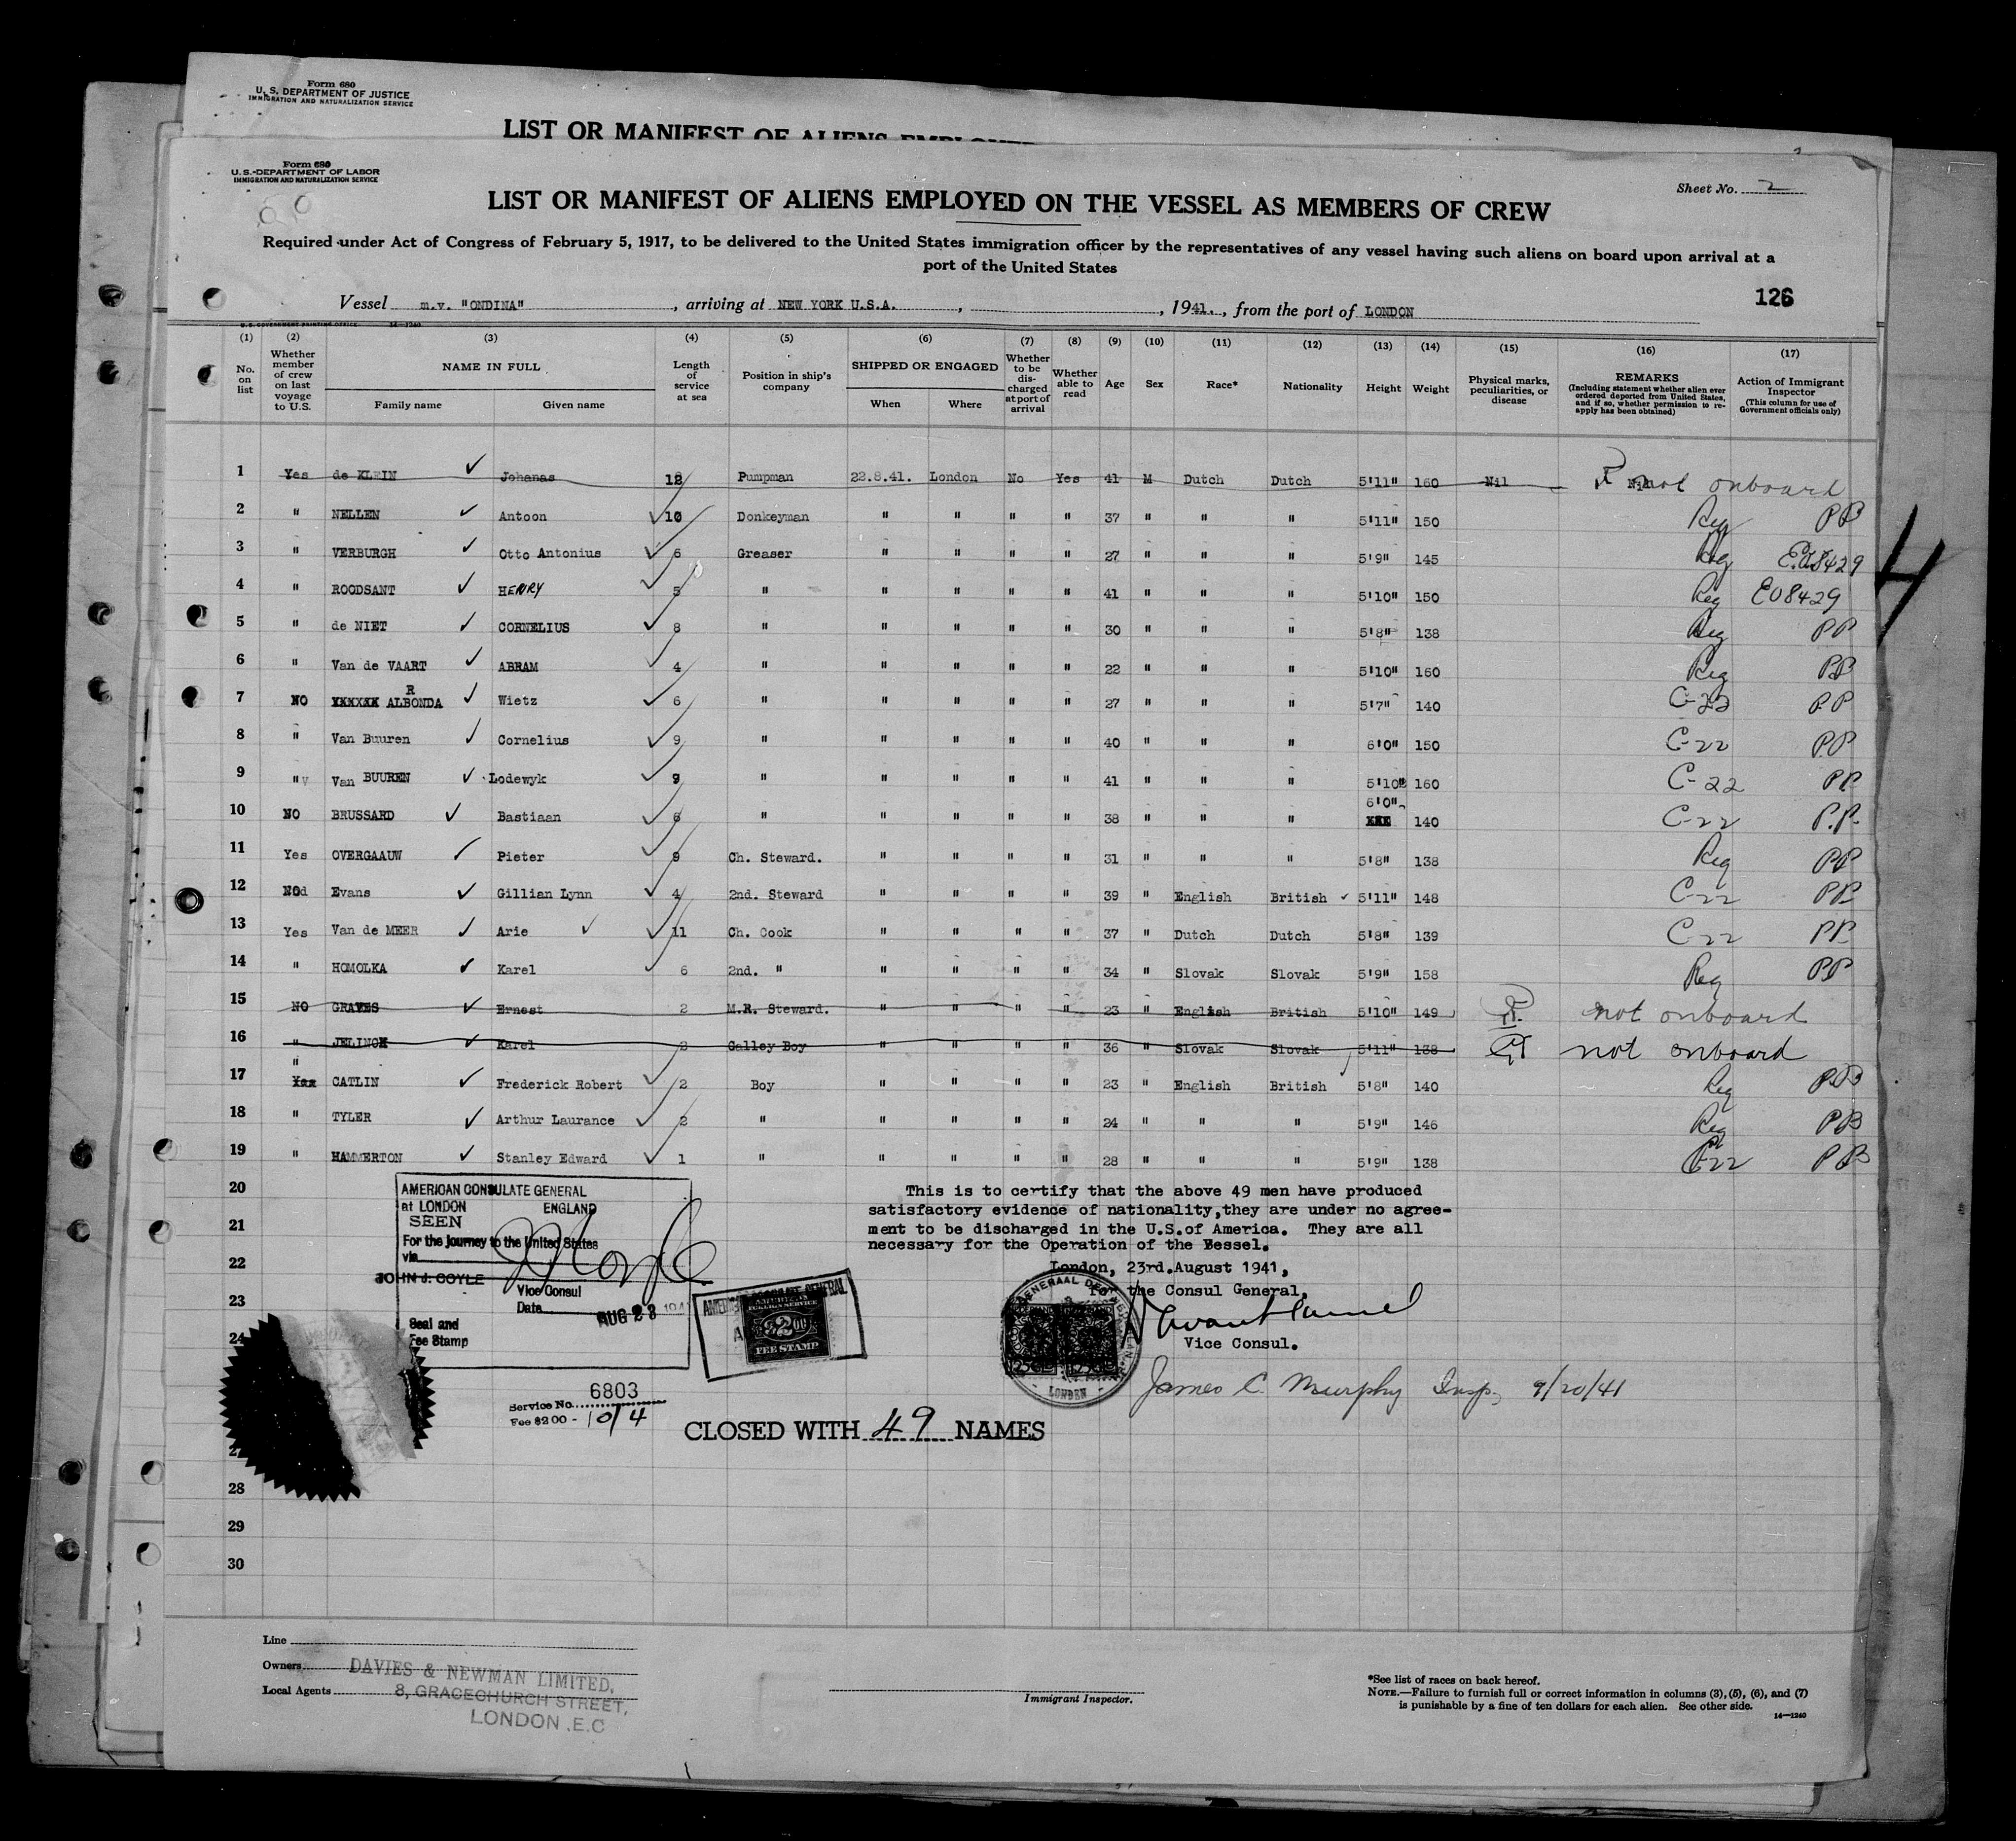 Form 680
U. S. DEPARTMENT OF JUSTICE
IMMIGRATION AND NATURALIZATION SERVICE
LIST OR MANIFEST OF ALIENS EMPLOYE
Form 680
U. S. DEPARTMENT OF LABOR
IMMIGRATION AND NATURALIZATION SERVICE
Sheet No. 2
LIST OR MANIFEST OF ALIENS EMPLOYED ON THE VESSEL AS MEMBERS OF CREW
Required under Act of Congress of February 5, 1917, to be delivered to the United States immigration officer by the representatives of any vessel having such aliens on board upon arrival at a
port of the United States
126
Vessel m.v. "ONDINA", arriving at NEW YORK U.S.A., , 1941., from the port of LONDON
U.S. GOVERNMENT PRINTING OFFICE 14—1240
(1) (2) (3) (4) (5) (6) (7) (8) (9) (10) (11) (12) (13) (14) (15) (16) (17)
No. on list
Whether member of crew on last voyage to U.S.
NAME IN FULL
Family name Given name
Length of service at sea
Position in ship's company
SHIPPED OR ENGAGED
When Where
Whether to be discharged at port of arrival
Whether able to read
Age
Sex
Race*
Nationality
Height
Weight
Physical marks, peculiarities, or disease
REMARKS
(Including statement whether alien ever ordered deported from United States, and if so, whether permission to re-apply has been obtained)
Action of Immigrant Inspector
(This column for use of Government officials only)
1 Yes de KLEIN ✓ Johanas 12 Pumpman 22.8.41. London No Yes 41 M Dutch Dutch 5'11" 160 Nil Nil not onboard
2 " NELLEN ✓ Antoon ✓ 10 Donkeyman " " " " 37 " " " 5'11" 150 Reg PB
3 " VERBURGH ✓ Otto Antonius ✓ 6 Greaser " " " " 27 " " " 5'9" 145 Reg E.08429
4 " ROODSANT ✓ HENRY ✓ 5 " " " " " 41 " " " 5'10" 150 Reg E08429
5 " de NIET ✓ CORNELIUS ✓ 8 " " " " " 30 " " " 5'8" 138 Reg PP
6 " Van de VAART ✓ ABRAM ✓ 4 " " " " " 22 " " " 5'10" 160 Reg PB
7 NO XXXXXX ALBONDA R ✓ Wietz ✓ 6 " " " " " 27 " " " 5'7" 140 C-22 PP
8 " Van Buuren ✓ Cornelius ✓ 9 " " " " " 40 " " " 6'0" 150 C-22 PP
9 " Van BUUREN ✓ Lodewyk ✓ 9 " " " " " 41 " " " 5'10" 160 C-22 PP
10 NO BRUSSARD ✓ Bastiaan ✓ 6 " " " " " 38 " " " 6'0" XXX 140 C-22 P.P.
11 Yes OVERGAAUW ✓ Pieter ✓ 9 Ch. Steward. " " " " 31 " " " 5'8" 138 Reg PP
12 NO Evans ✓ Gillian Lynn ✓ 4 2nd. Steward " " " " 39 " English British ✓ 5'11" 148 C-22 PP
13 Yes Van de MEER ✓ Arie ✓ ✓ 11 Ch. Cook " " " " 37 " Dutch Dutch 5'8" 139 C-22 PP
14 " HOMOLKA ✓ Karel ✓ 6 2nd. " " " " " 34 " Slovak Slovak 5'9" 158 Reg PP
15 NO GRAVES ✓ Ernest 2 M.R. Steward. " " " " 23 " English British 5'10" 149 not onboard
16 " JELINCK ✓ Karel 2 Galley Boy " " " " 36 " Slovak Slovak 5'11" 138 not onboard
17 " Yes CATLIN ✓ Frederick Robert ✓ 2 Boy " " " " 23 " English British 5'8" 140 Reg PB
18 " TYLER ✓ Arthur Laurance ✓ 2 " " " " " 24 " " " 5'9" 146 Reg PB
19 " HAMMERTON ✓ Stanley Edward ✓ 1 " " " " " 28 " " " 5'9" 138 C-22 PB
4
20
21
22
23
24
28
29
30
AMERICAN CONSULATE GENERAL
at LONDON ENGLAND
SEEN
For the journey to the United States
via
JOHN J. COYLE
Vice Consul
Date AUG 23 194
Seal and
Fee Stamp
Service No. 6803
Fee $2 00 - 10/4
AMERICAN
FOREIGN SERVICE
$2.00
FEE STAMP
This is to certify that the above 49 men have produced
satisfactory evidence of nationality, they are under no agree-
ment to be discharged in the U.S.of America. They are all
necessary for the Operation of the Bessel.
London, 23rd.August 1941,
For the Consul General.
Vice Consul.
LONDEN
James C. Murphy Insp. 9/20/41
CLOSED WITH 49 NAMES
Line
Owners
Local Agents
DAVIES & NEWMAN LIMITED,
8, GRACECHURCH STREET,
LONDON .E.C
Immigrant Inspector.
*See list of races on back hereof.
NOTE.—Failure to furnish full or correct information in columns (3), (5), (6), and (7)
is punishable by a fine of ten dollars for each alien. See other side.
14—1240